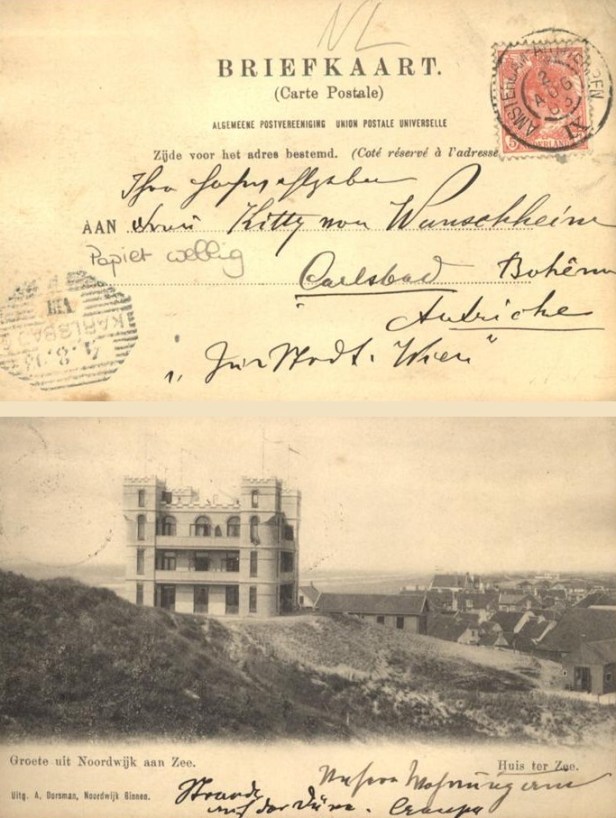 NL
BRIEFKAART.
(Carte Postale)
ALGEMEENE POSTVEREENIGING UNION POSTALE UNIVERSELLE
Zijde voor het adres bestemd. (Coté réservé à l'adresse
AMSTERDAM
2 AUG
5
Ihro
AAN Frau Kitty von Wunschheim
Papiet wellig
Carlsbad Bohême
Autriche
KARLSBAD
4.8.
VIII
"Zur Stadt Wien"
Groete uit Noordwijk aan Zee.
Huis ter Zee.
Uitg. A. Dorsman, Noordwijk Binnen.
Strande Unsere Wohnung am
auf der Düne.